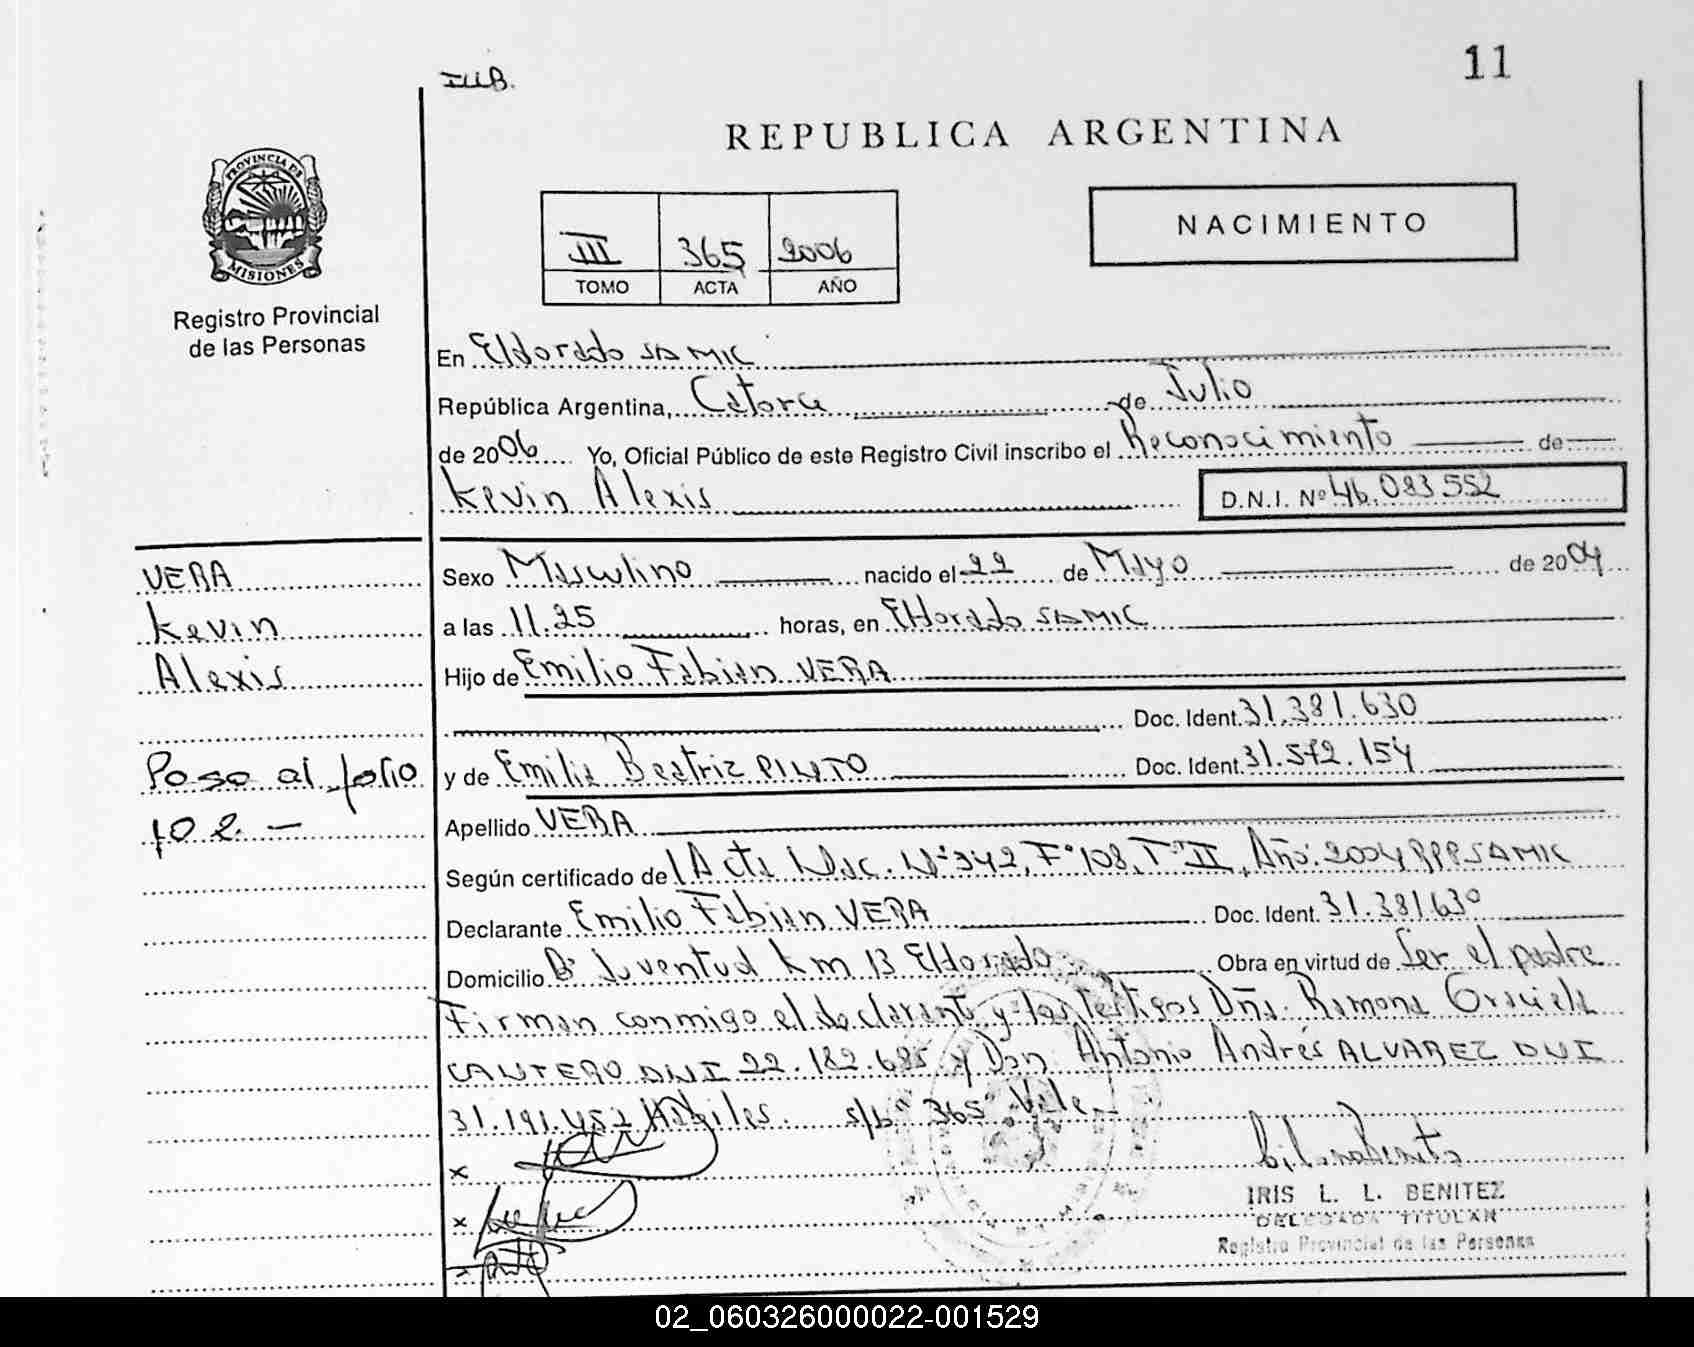 11
I.LL.B.
REPUBLICA ARGENTINA
PROVINCIA DE
MISIONES
Registro Provincial
de las Personas
III 365 2006
TOMO ACTA AÑO
NACIMIENTO
En Eldorado SAMIC
República Argentina, Catorce de Julio
de 2006 Yo, Oficial Público de este Registro Civil inscribo el Reconocimiento de
Kevin Alexis D.N.I. Nº 46.083.552
VERA
Kevin
Alexis
Paso al folio
102.-
Sexo Masculino nacido el 22 de Mayo de 2004
a las 11.25 horas, en Eldorado SAMIC
Hijo de Emilio Fabian VERA
Doc. Ident. 31.381.630
y de Emilia Beatriz PINTO Doc. Ident. 31.572.154
Apellido VERA
Según certificado de Acta Nac. Nº 342, Fº 108, Tº II, Año: 2004 RPPSAMIC
Declarante Emilio Fabian VERA Doc. Ident. 31.381.630
Domicilio Bº Juventud Km 13 Eldorado Obra en virtud de Ser el padre
Firman conmigo el declarante y los testigos Dña. Ramona Graciela
CANTERO DNI 22.182.685 y Don Antonio Andrés ALVAREZ DNI
31.191.452 Hábiles. s/b "365" Vale
x
x
x
IRIS L. L. BENITEZ
DELEGADA TITULAR
Registro Provincial de las Personas
02_060326000022-001529